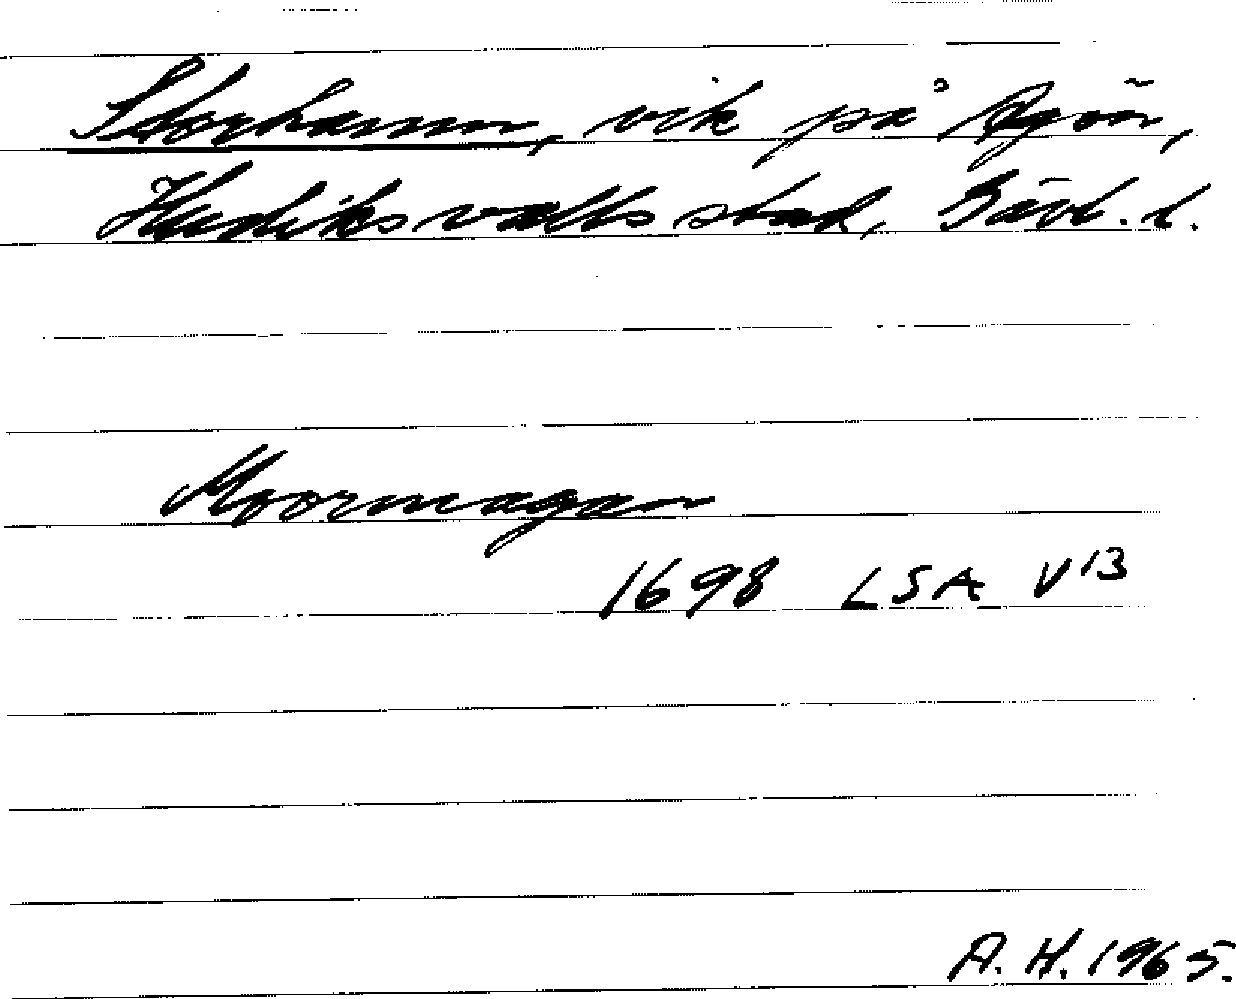 Storhamn, vik på Agön,
Hudiksvalls stad, Gävl. l.
Moormagan
1698 LSA V13
A. H. 1965.